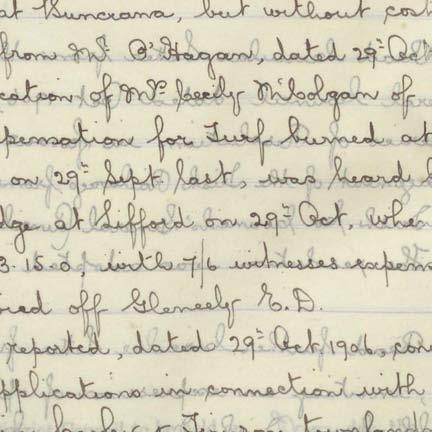 at Buncrana, but without cost
from Mr. O'Hagan, dated 29th Oct
cation of Mrs Cecily McColgan of
pensation for Turf burned at
on 29th Sept. last, was heard
dge at Lifford on 29th Oct, when
3.15.0 with 7/6 witnesses expens
ired off Gleneely E.D.
reported, dated 29th Oct. 1906, con
pplications in connection with